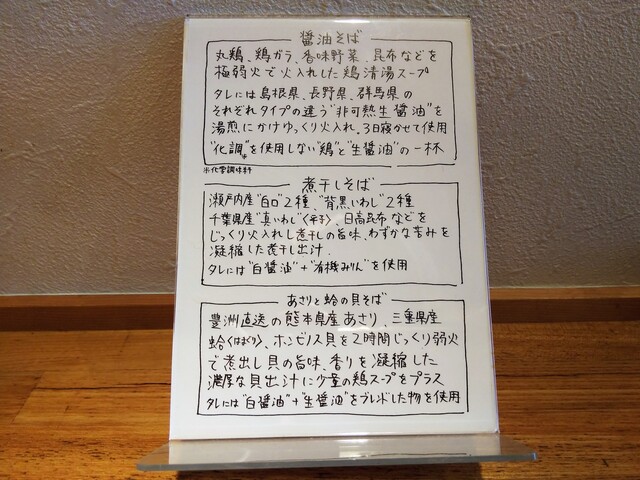 醤油そば
丸鶏、鶏ガラ、香味野菜、昆布などを
極弱火で火入れした鶏清湯スープ
タレには島根県、長野県、群馬県の
それぞれタイプの違う"非可熱生醤油"を
湯煎にかけゆっくり火入れ。3日寝かせて使用
"化調※"を使用しない"鶏"と"生醤油"の一杯
※化学調味料
煮干しそば
瀬戸内産"白口"2種、"背黒いわし"2種
千葉県産"真いわし"〈平子〉、日高昆布などを
じっくり火入れし煮干しの旨味、わずかな苦みを
凝縮した煮干し出汁.
タレには"白醤油"+"有機みりん"を使用
あさりと蛤の貝そば
豊洲直送の熊本県産あさり、三重県産
蛤〈はまぐり〉、ホンビノス貝を2時間じっくり弱火
で煮出し貝の旨味、香りを凝縮した
濃厚な貝出汁に少量の鶏スープをプラス
タレには"白醤油"+"生醤油"をブレンドした物を使用